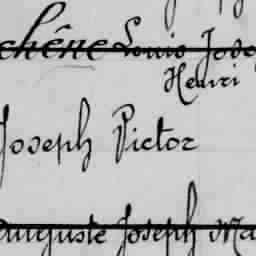 chêne Louis Jose
Henri
Joseph Pictor
Auguste Joseph Ma